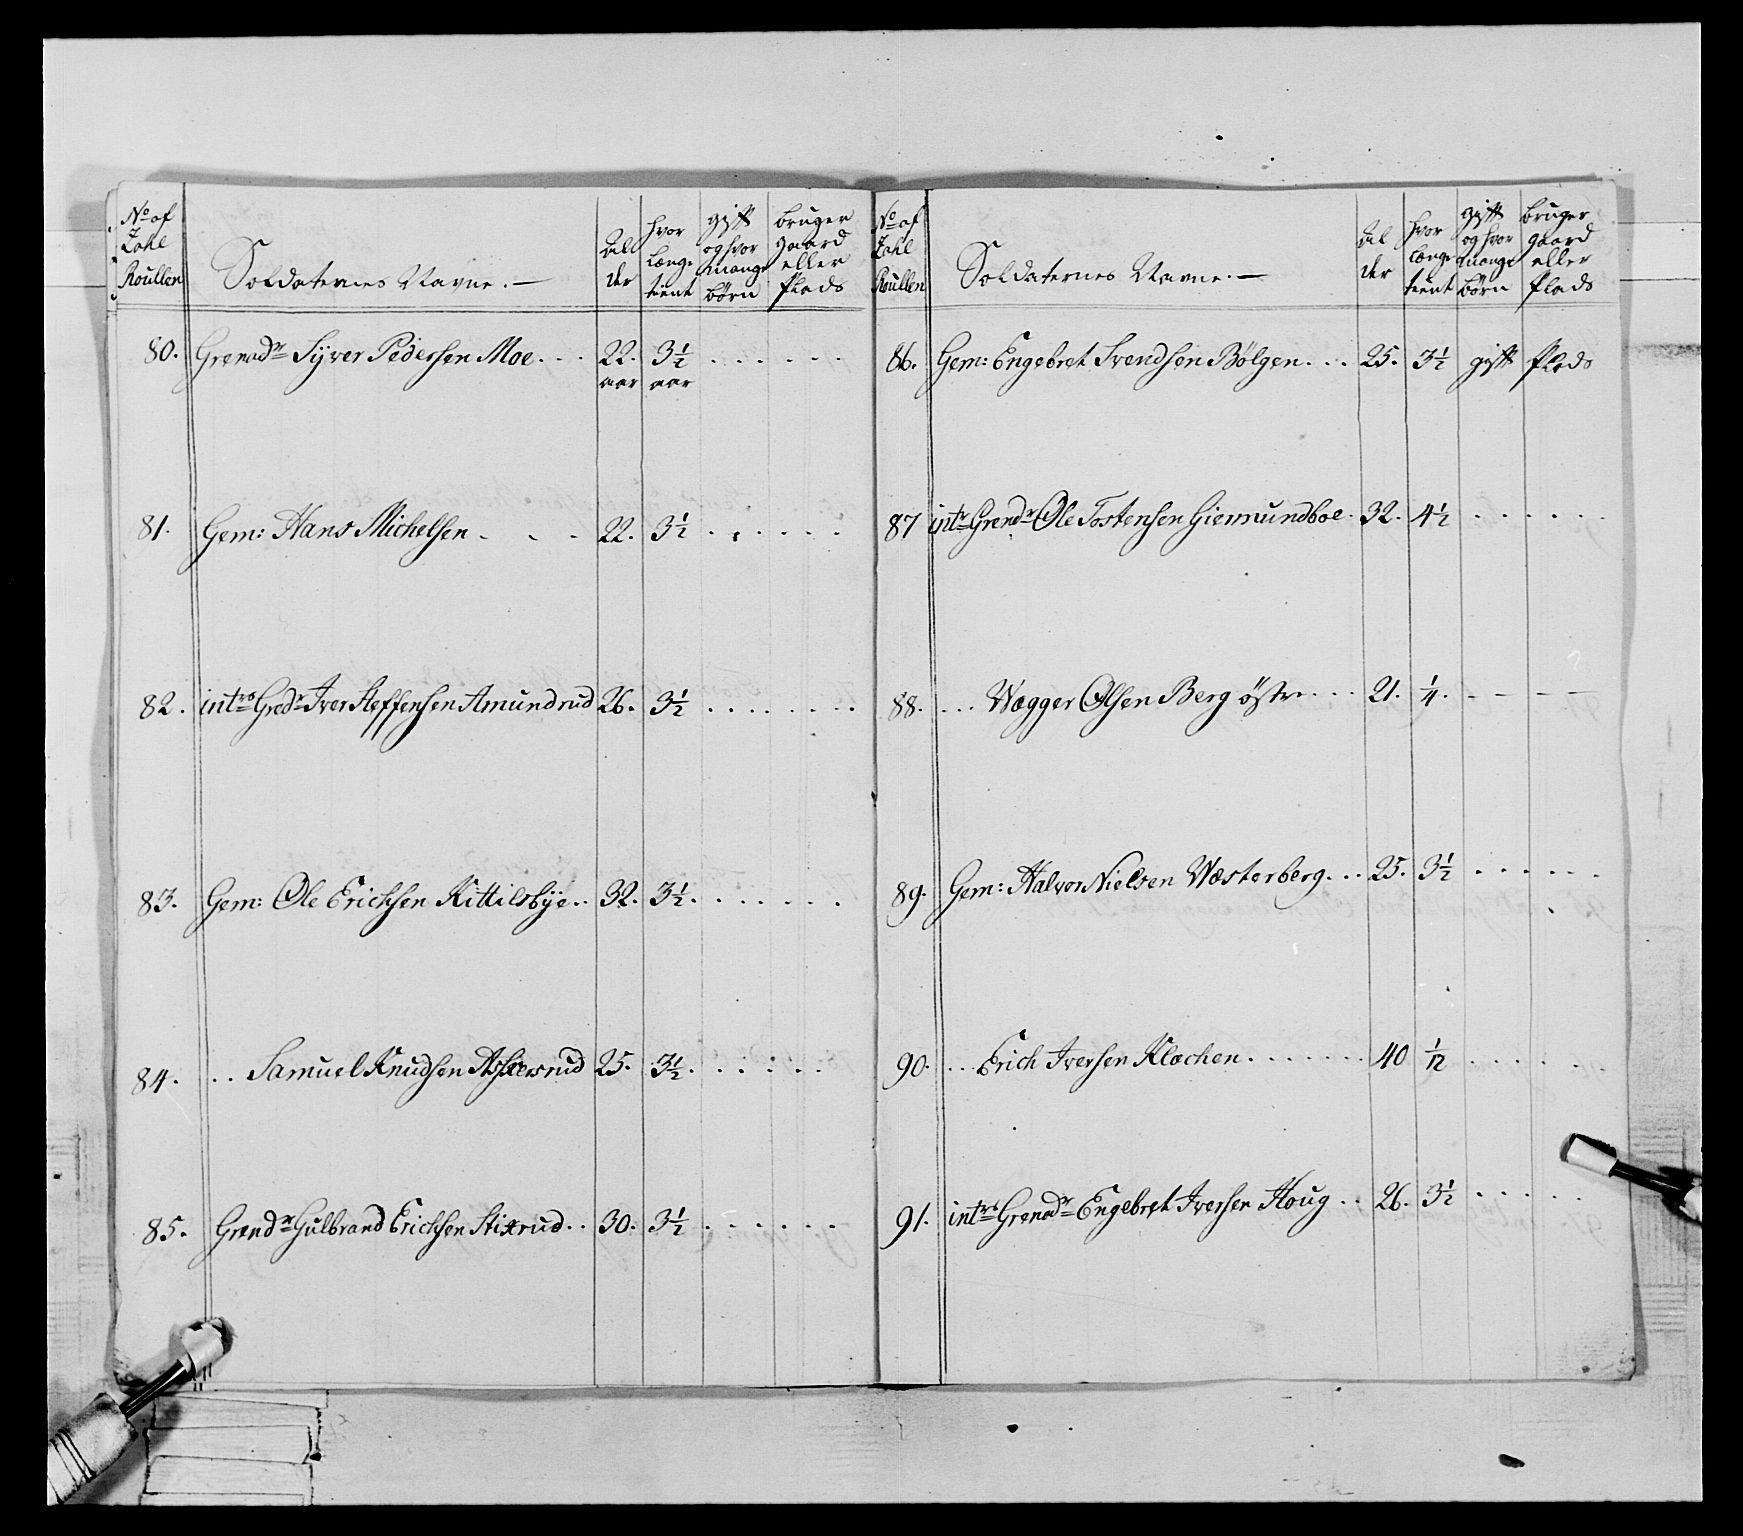 No af Zahl Roullen | Soldaternes Navne. — | Al der | hvor længe tient | gift og hvor mange børn | bruger gaard eller plads
80. Grenadr Syver Pedersen Moe . . . 22. aar 3½ aar . . . . . .
81. Gem: Hans Michelsen . . . 22. 3½ . . . . . .
82. intrs Gredr Iver Steffensen Amundrud 26. 3½ . . . . . . .
83. Gem: Ole Erichsen Kittilsbye . . 32. 3½ . . . . . . .
84. . . Samuel Knudsen 25. 3½ . . . . . .
85. Grendr Gulbrand Erichsen Stixrud . . 30. 3½ . . . . . .
No af Zahl Roullen | Soldaternes Navne. — | Al der | hvor længe tient | gift og hvor mange børn | bruger gaard eller plads
86. Gem: Engebret Svendsen Bølgen . . . 25. 3½ gift plads
87 intr Grendr Ole Tostensen Giemundboe . 32. 4½ . . . . . .
88. . . . Wægger Olsen Berg østr . . . 21. ¼. - - - -
89. Gem: Halvor Nielsen Wæsterberg . . . 25. 3½ . . . . . .
90. . . . Erich Iversen Klæchen . . . . . . . 40 1/12 . . . . . .
91. intrs Grenadr Engebret Iversen Houg . . 26. 3½ . . . . .